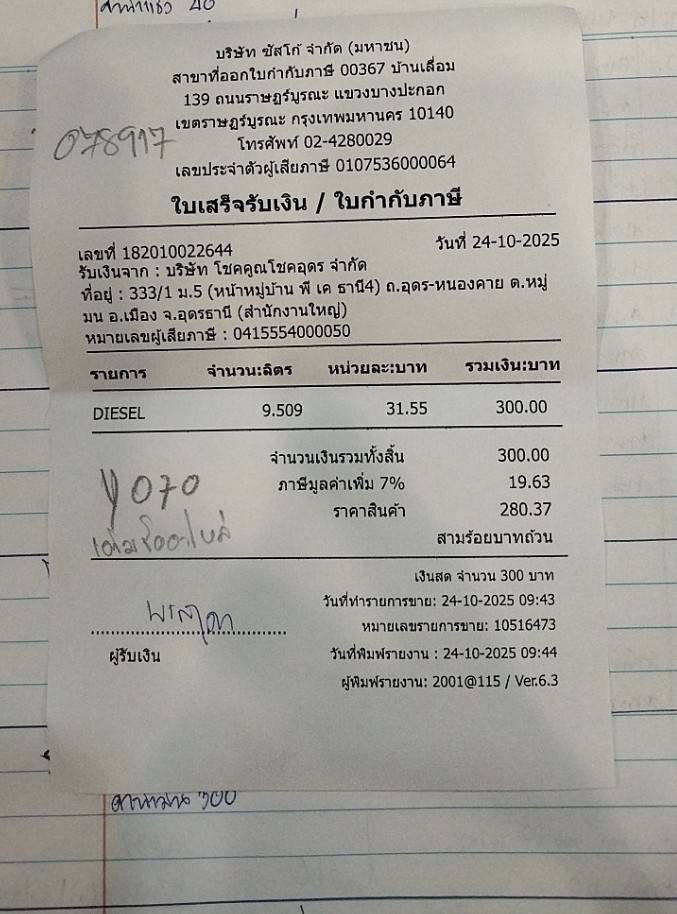 บริษัท ซัสโก้ จำกัด (มหาชน)
สาขาที่ออกใบกำกับภาษี 00367 บ้านเลื่อม
139 ถนนราษฎร์บูรณะ แขวงบางปะกอก
เขตราษฎร์บูรณะ กรุงเทพมหานคร 10140
078917
โทรศัพท์ 02-4280029
เลขประจำตัวผู้เสียภาษี 0107536000064
ใบเสร็จรับเงิน / ใบกำกับภาษี
เลขที่ 182010022644 วันที่ 24-10-2025
รับเงินจาก : บริษัท โชคคูณโชคอุดร จำกัด
ที่อยู่ : 333/1 ม.5 (หน้าหมู่บ้าน พี เค ธานี4) ถ.อุดร-หนองคาย ต.หมู่
มน อ.เมือง จ.อุดรธานี (สำนักงานใหญ่)
หมายเลขผู้เสียภาษี : 0415554000050
รายการ จำนวน:ลิตร หน่วยละ:บาท รวมเงิน:บาท
DIESEL 9.509 31.55 300.00
จำนวนเงินรวมทั้งสิ้น 300.00
ภาษีมูลค่าเพิ่ม 7% 19.63
070
ราคาสินค้า 280.37
สามร้อยบาทถ้วน
เงินสด จำนวน 300 บาท
วันที่ทำรายการขาย: 24-10-2025 09:43
หมายเลขรายการขาย: 10516473
ผู้รับเงิน
วันที่พิมพ์รายงาน : 24-10-2025 09:44
ผู้พิมพ์รายงาน: 2001@115 / Ver.6.3
300